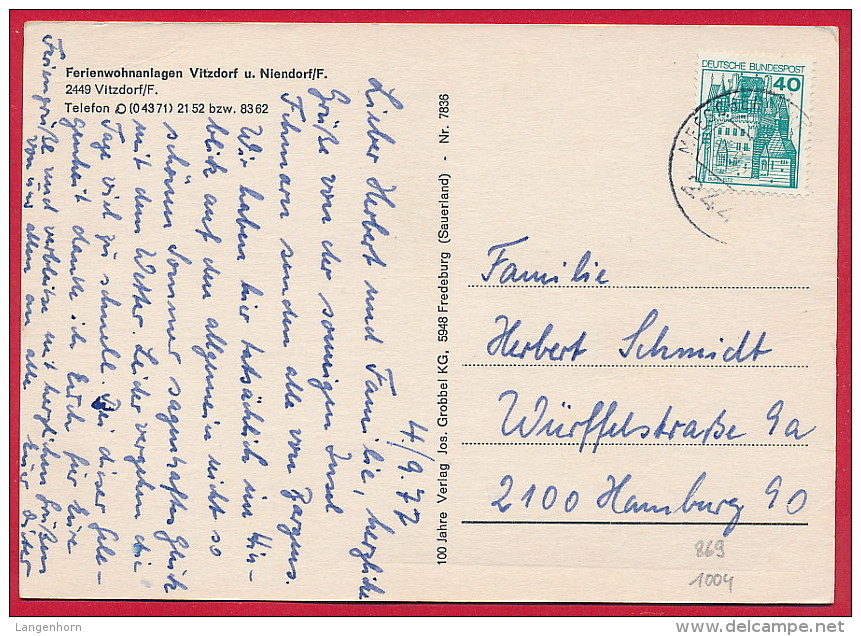 Ferienwohnanlagen Vitzdorf u. Niendorf/F.
2449 Vitzdorf/F.
Telefon (04371) 21 52 bzw. 83 62
4./9.77
Lieber Herbert und Familie, herzliche
Grüße von der sonnigen Insel
Fehmarn senden alle von Bargens.
Wir haben hier tatsächlich im Hin-
blick auf den allgemein nicht so
schönen Sommer sagenhaftes Glück
mit dem Wetter. Leider vergehen die
Tage viel zu schnell. Bei dieser Gele-
genheit danke ich Euch für Eure
Feriengrüße und verbleibe mit herzlichen Grüßen
von uns allen an alle Euer Dieter
100 Jahre Verlag Jos. Grobbel KG, 5948 Fredeburg (Sauerland) - Nr. 7836
DEUTSCHE BUNDESPOST
40
244
Familie
Herbert Schmidt
Würffelstraße 9a
2100 Hamburg 90
869
1004
Langenhorn
delcampe.net